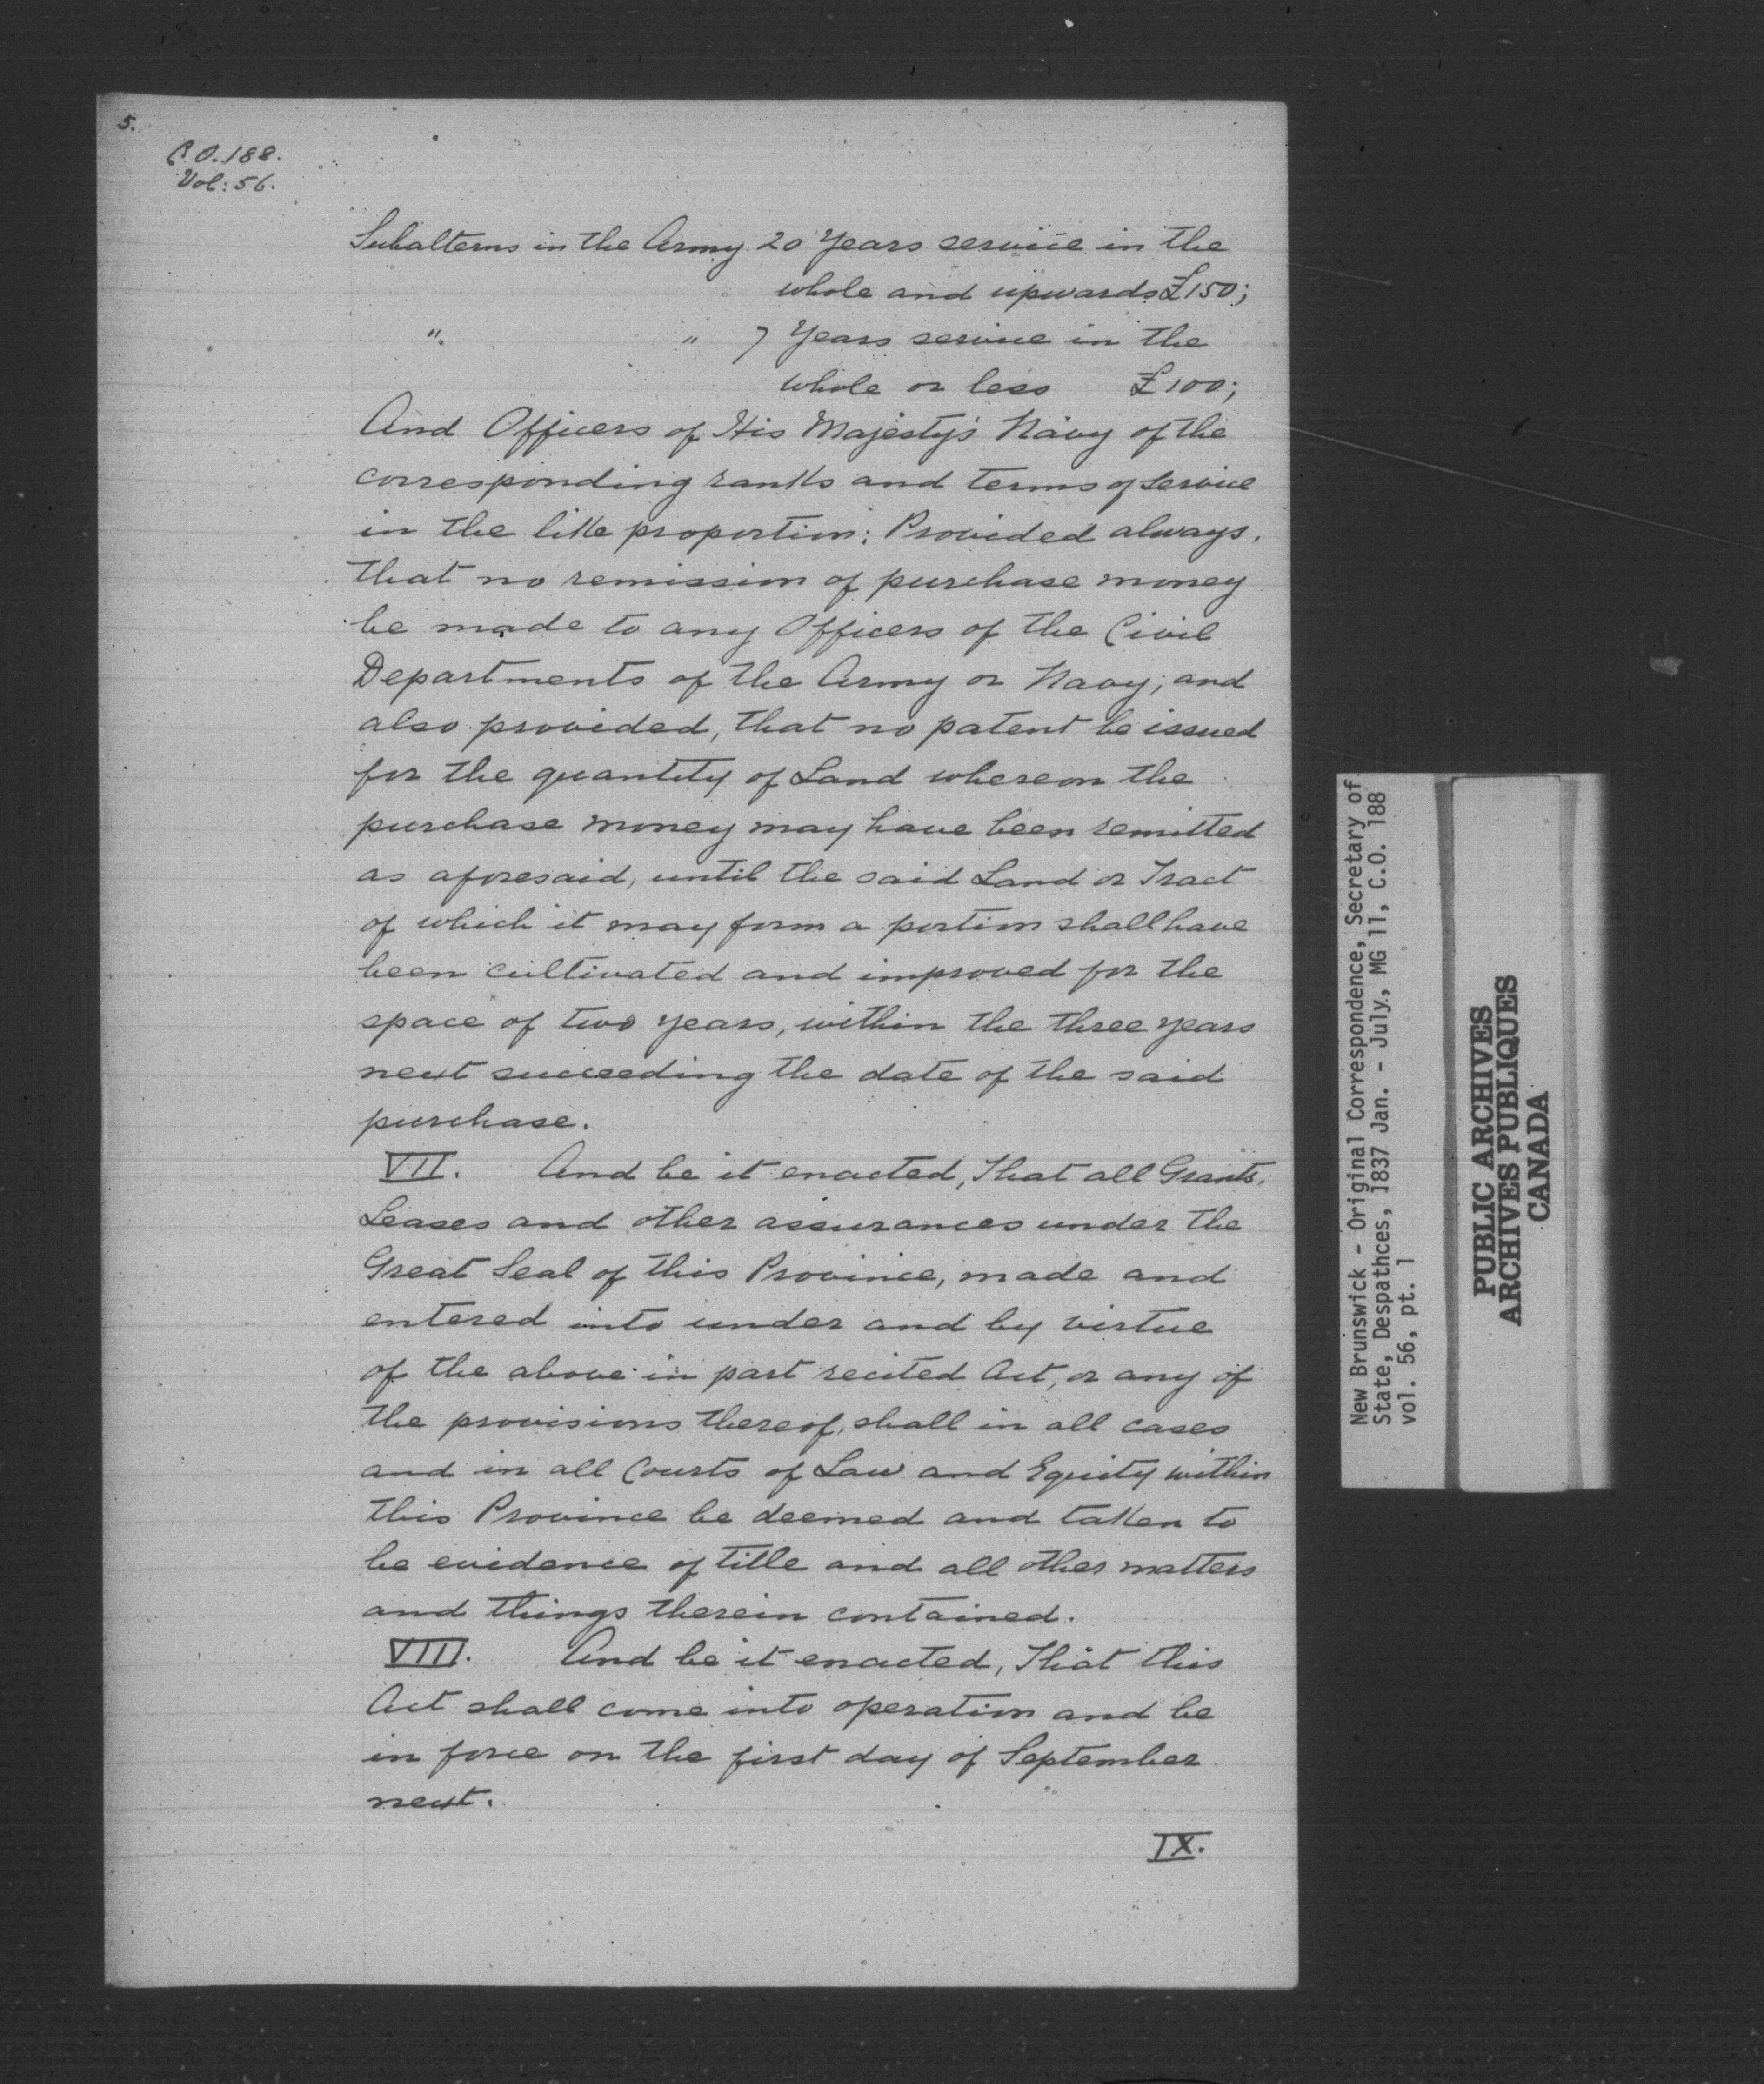 5.
C.O. 188.
Vol: 56.
Subalterns in the Army 20 Years service in the
whole and upwards £150;
" " 7 Years service in the
whole or less £100;
And Officers of His Majesty's Navy of the
corresponding ranks and terms of Service
in the like proportion: Provided always,
that no remission of purchase money
be made to any Officers of the Civil
Departments of the Army or Navy; and
also provided, that no patent be issued
for the quantity of Land whereon the
purchase money may have been remitted
as aforesaid, until the said Land or Tract
of which it may form a portion shall have
been cultivated and improved for the
space of two years, within the three years
next succeeding the date of the said
purchase.
VII. And be it enacted, That all Grants,
Leases and other assurances under the
Great Seal of this Province, made and
entered into under and by virtue
of the above in part recited Act, or any of
the provisions thereof, shall in all cases
and in all Courts of Law and Equity within
this Province be deemed and taken to
be evidence of title and all other matters
and things therein contained.
VIII. And be it enacted, That this
Act shall come into operation and be
in force on the first day of September
next.
IX.
New Brunswick - Original Correspondence, Secretary of
State, Despathces, 1837 Jan. - July, MG 11, C.O. 188
vol. 56, pt. 1
PUBLIC ARCHIVES
ARCHIVES PUBLIQUES
CANADA